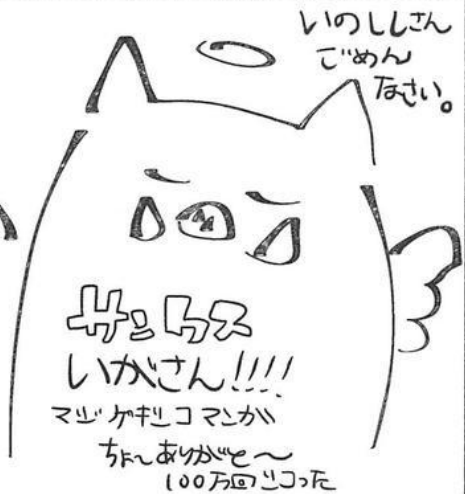 いのししさん
ごめん
なさい。
サンクス
いがさん!!!!
マジゲキシコマンガ
ちょ〜ありがと〜
100万回シコった